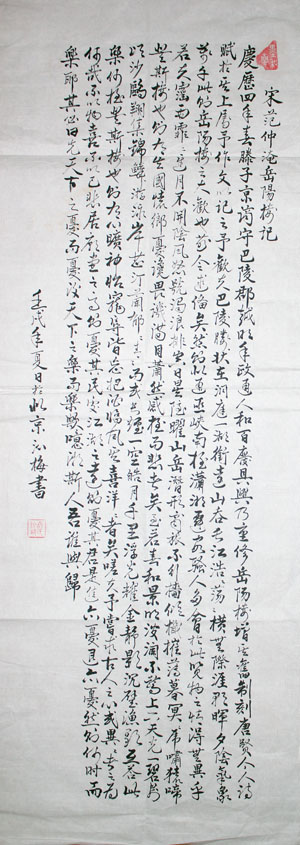 宋范仲淹岳陽樓記
慶曆四年春滕子京謫守巴陵郡越明年政通人和百廢具興乃重修岳陽樓增其舊制刻唐賢今人詩
賦於其上屬予作文以記之予觀夫巴陵勝狀在洞庭一湖銜遠山吞長江浩浩湯湯橫無際涯朝暉夕陰氣象
萬千此則岳陽樓之大觀也前人之述備矣然則北通巫峽南極瀟湘遷客騷人多會於此覽物之情得無異乎
若夫霪雨霏霏連月不開陰風怒號濁浪排空日星隱曜山岳潛形商旅不行檣傾楫摧薄暮冥冥虎嘯猿啼
登斯樓也則有去國懷鄉憂讒畏譏滿目蕭然感極而悲者矣至若春和景明波瀾不驚上下天光一碧萬
頃沙鷗翔集錦鱗游泳岸芷汀蘭郁郁青青而或長煙一空皓月千里浮光躍金靜影沉璧漁歌互答此
樂何極登斯樓也則有心曠神怡寵辱皆忘把酒臨風其喜洋洋者矣嗟夫予嘗求古人之心或異二者之為
何哉不以物喜不以己悲居廟堂之高則憂其民處江湖之遠則憂其君是進亦憂退亦憂然則何時而
樂耶其必曰先天下之憂而憂後天下之樂而樂歟噫微斯人吾誰與歸
壬戌年夏日於北京沁梅書